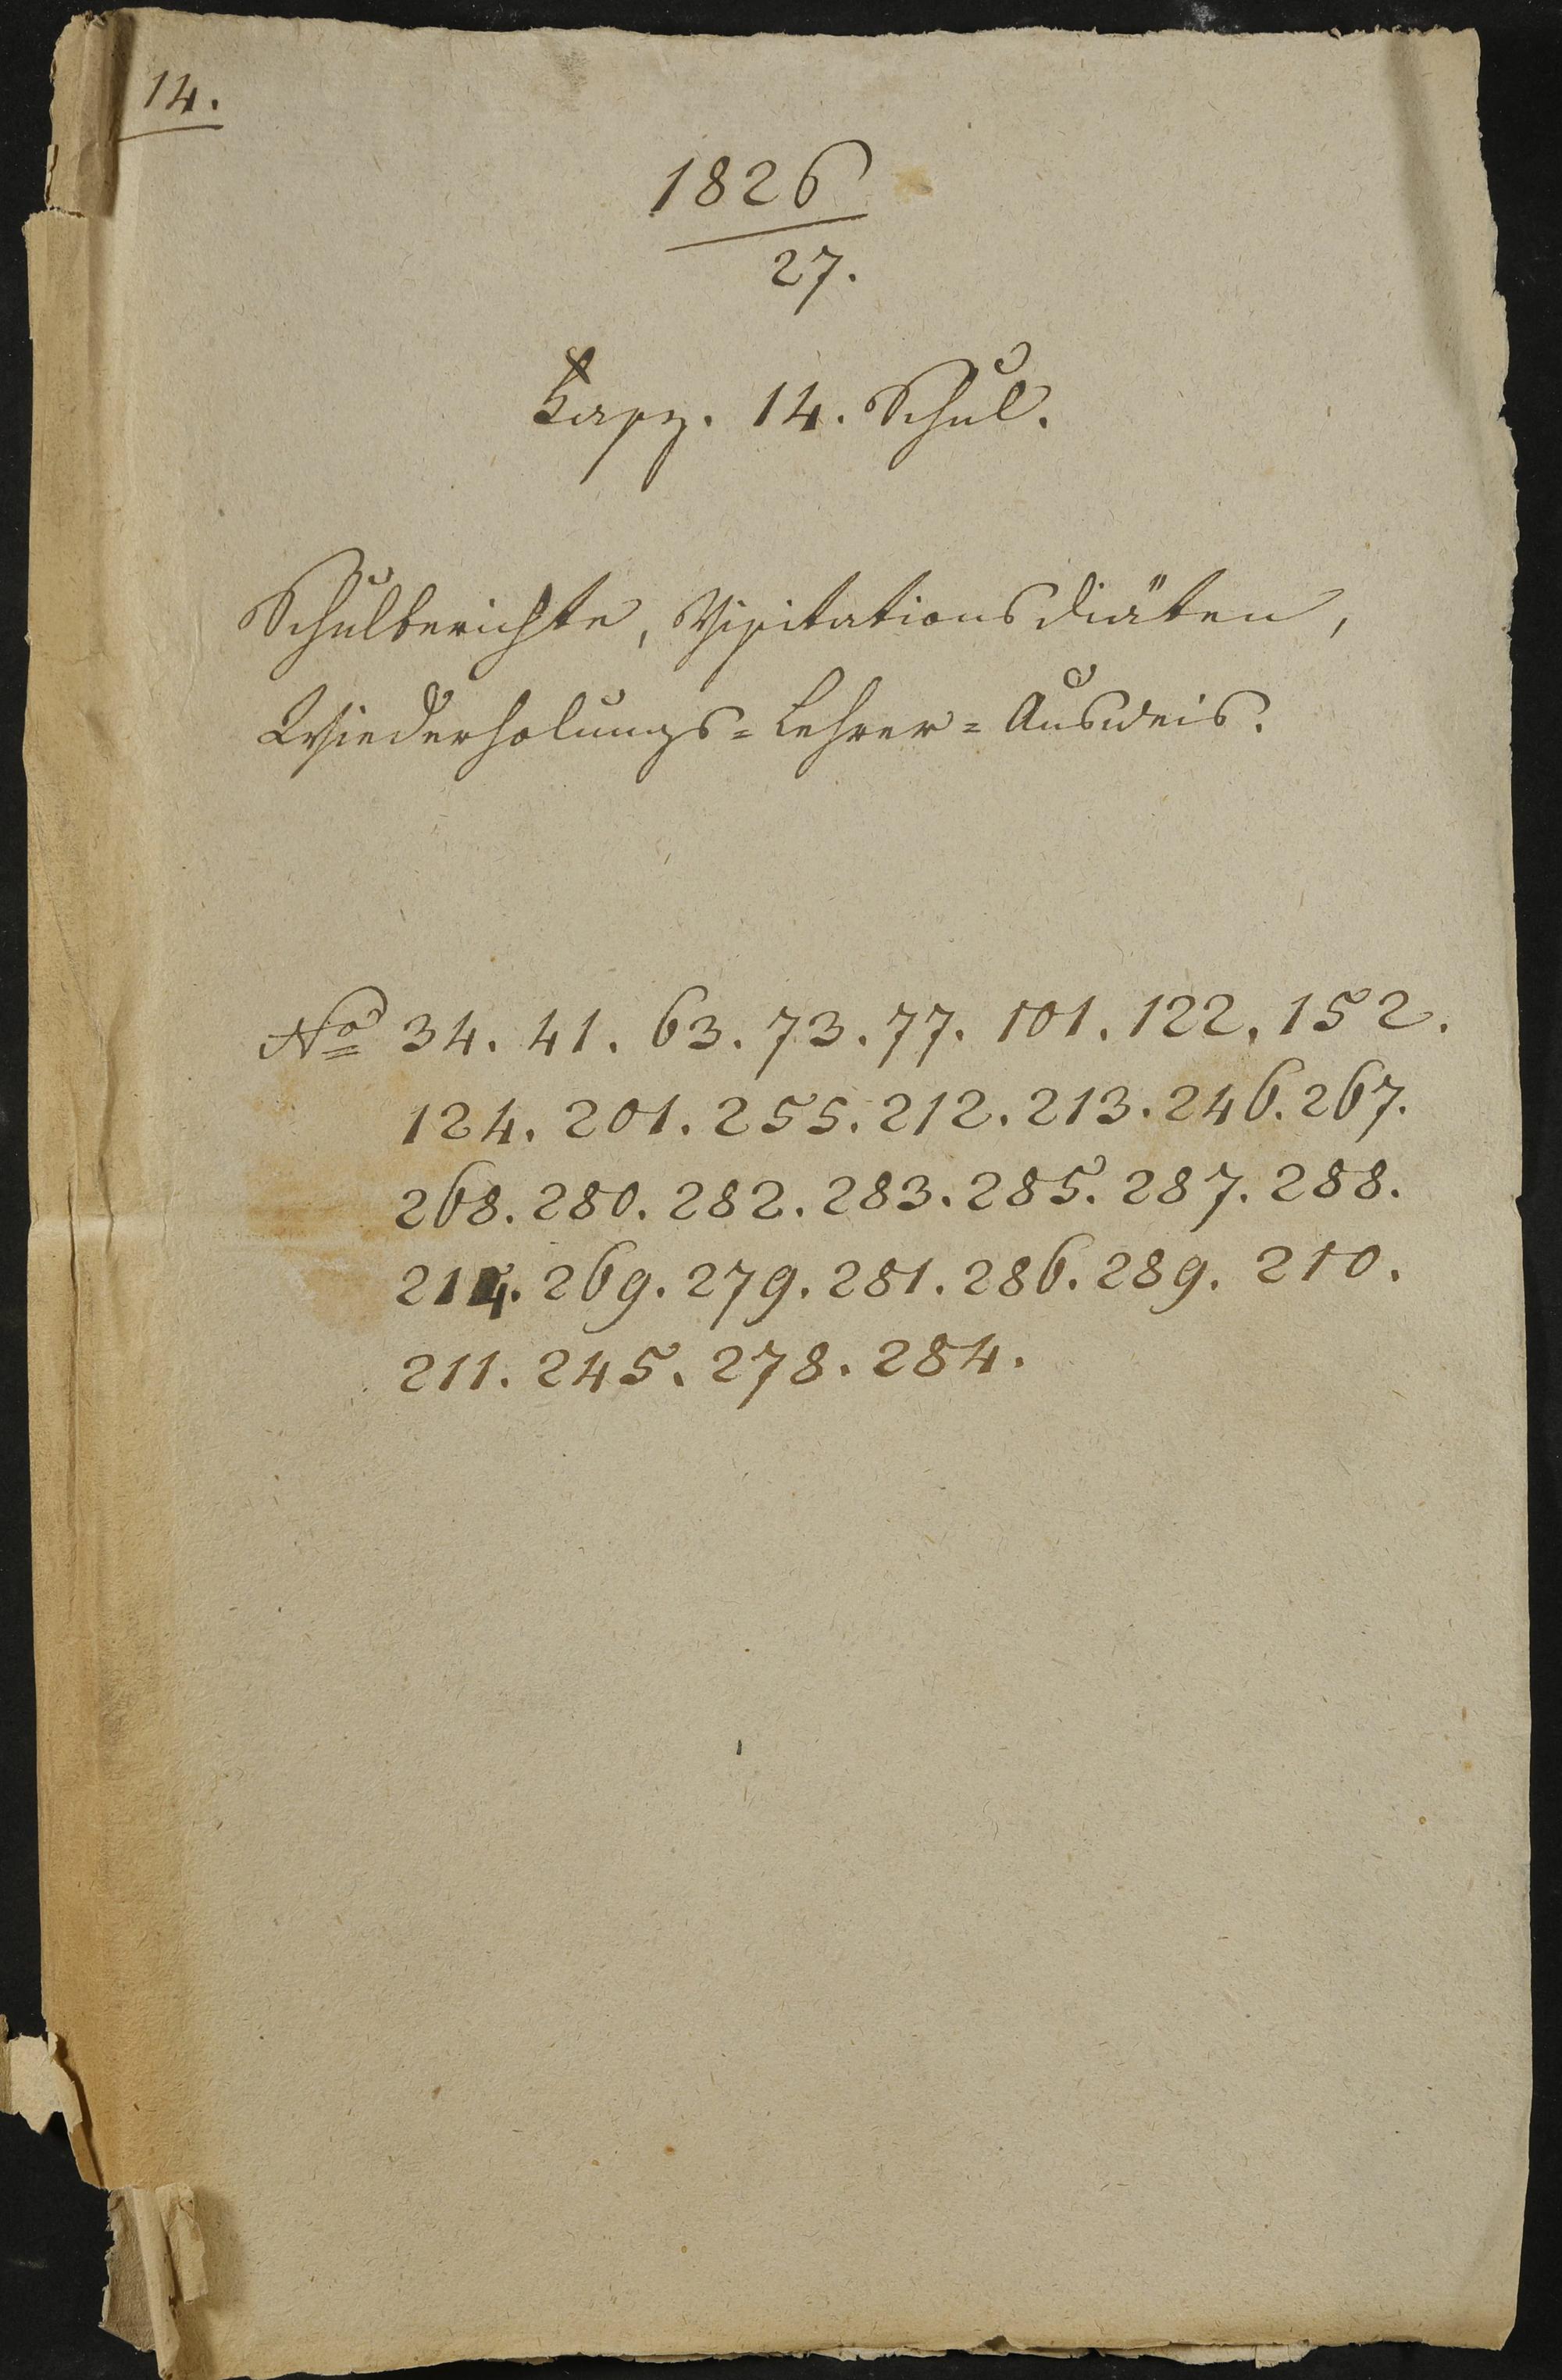 14.
1826
27.
14. Schul.
Schulberichte, Visitationsdiäten,
Wiederholungs=Lehrer=Ausweis.
No 34. 41. 63. 73. 77. 101. 122. 152.
124. 201. 255. 212. 213. 246. 267.
268. 280. 282. 283. 285. 287. 288.
214. 269. 279. 281. 286. 289. 210.
211. 245. 278. 284.